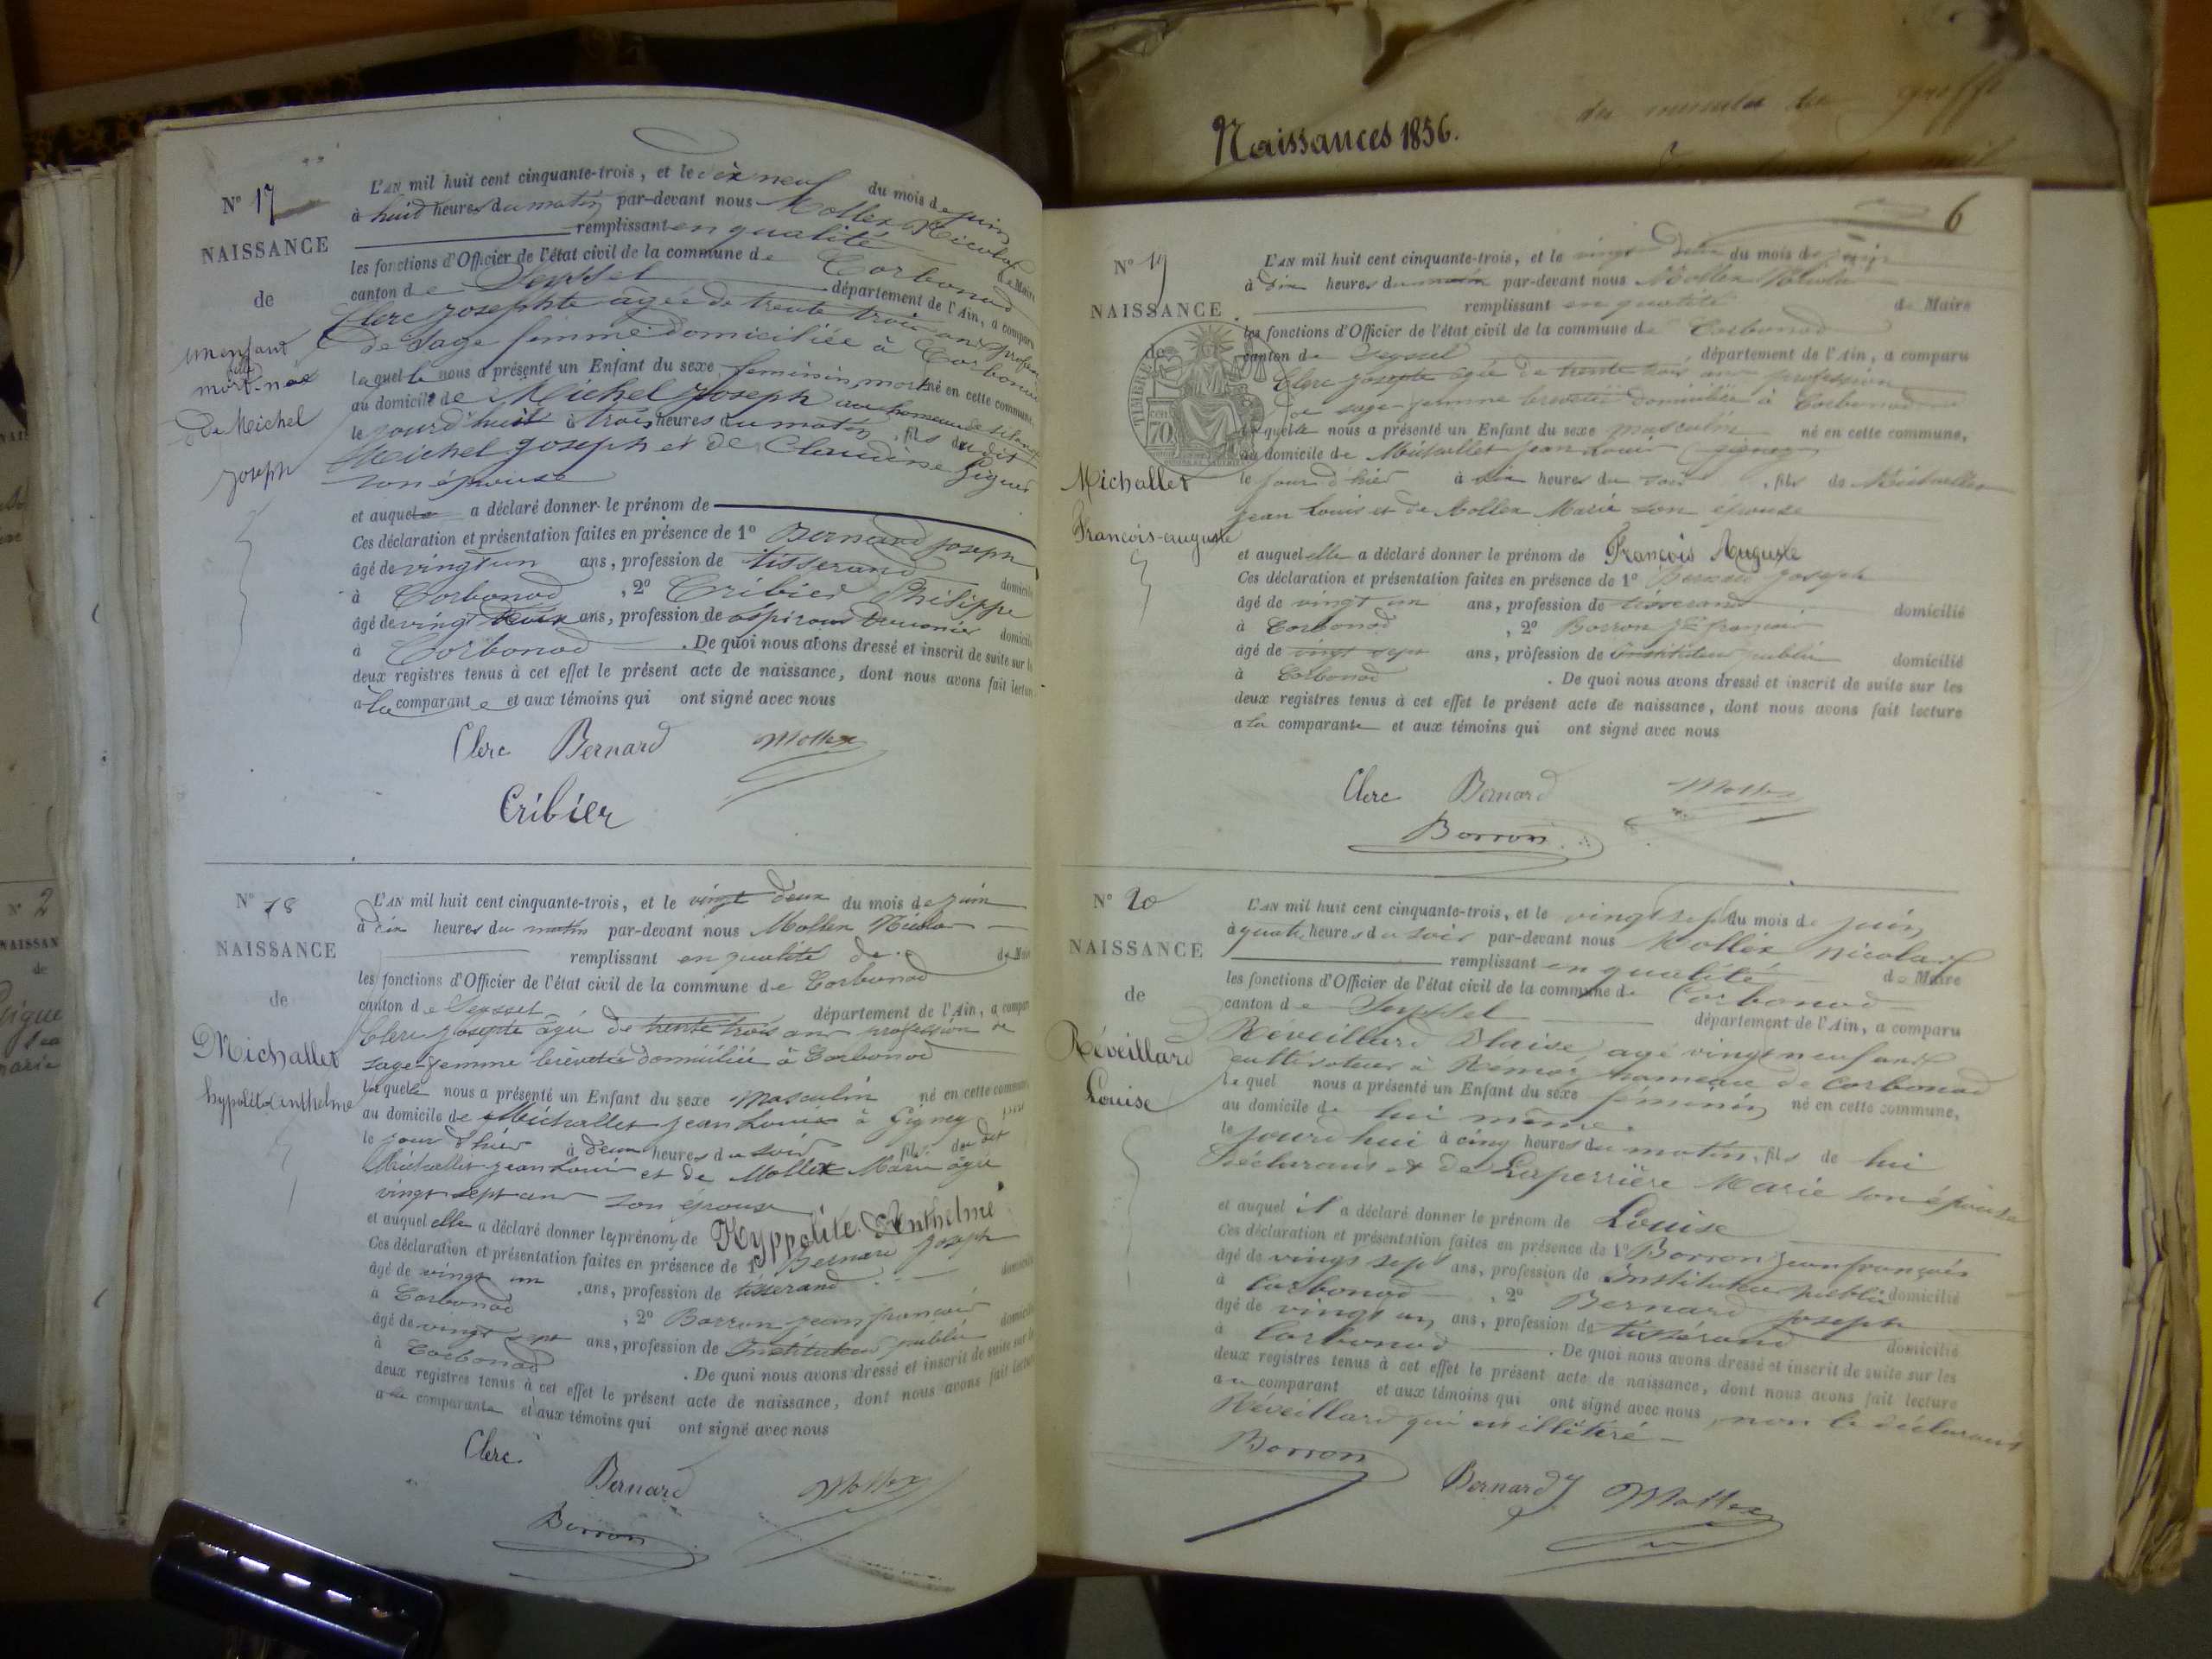 Naissances 1856.
N° 17
NAISSANCE
de
un enfant
mort-né
de Michel
Joseph
L'AN mil huit cent cinquante-trois, et le dix neuf du mois de juin
à huit heures du matin par-devant nous Mollex Nicolas
remplissant en qualité de Maire
les fonctions d'Officier de l'état civil de la commune de Corbonod
canton de Seyssel département de l'Ain, a comparu
Clerc Josephte âgée de trente trois ans profession
de Sage femme domiciliée à Corbonod
laquelle nous a présenté un Enfant du sexe feminin mort né en cette commune,
au domicile de Michel Joseph au hameau de
le jourd'huit à trois heures du matin, fils du dit
Michel Joseph et de Claudine
son épouse
et auquel a déclaré donner le prénom de
Ces déclaration et présentation faites en présence de 1° Bernard Joseph
âgé de vingt un ans, profession de tisserand domicilié
à Corbonod, 2° Cribier Philippe
âgé de vingt deux ans, profession de domicilié
à Corbonod. De quoi nous avons dressé et inscrit de suite sur les
deux registres tenus à cet effet le présent acte de naissance, dont nous avons fait lecture
a la comparante et aux témoins qui ont signé avec nous
Clerc Bernard Mollex
Cribier
N° 18
NAISSANCE
de
Michallet
hypolite anthelme
L'AN mil huit cent cinquante-trois, et le vingt deux du mois de juin
à dix heures du matin par-devant nous Mollex Nicolas
remplissant en qualité de de Maire
les fonctions d'Officier de l'état civil de la commune de Corbonod
canton de Seyssel département de l'Ain, a comparu
Clerc Josepte âgée de trente trois ans profession de
sage-femme brevetée domiciliée à Corbonod
laquelle nous a présenté un Enfant du sexe masculin né en cette commune,
au domicile de Michallet jean Louis à Gigney
le jour d'hier à deux heures du soir, fils du dit
Michallet jean Louis et de Mollex Marie âgée
vingt sept ans son épouse
et auquel elle a déclaré donner les prénoms de Hyppolite Anthelme
Ces déclaration et présentation faites en présence de 1° Bernard Joseph
âgé de vingt un ans, profession de tisserand domicilié
à Corbonod, 2° Borron jean françois
âgé de vingt sept ans, profession de Instituteur public domicilié
à Corbonod. De quoi nous avons dressé et inscrit de suite sur les
deux registres tenus à cet effet le présent acte de naissance, dont nous avons fait lecture
a la comparante et aux témoins qui ont signé avec nous
Clerc
Bernard Mollex
Borron
6
N° 19
NAISSANCE
de
TIMBRE
70
Michallet
François-auguste
L'AN mil huit cent cinquante-trois, et le vingt deux du mois de juin
à dix heures du matin par-devant nous Mollex Nicolas
remplissant en qualité de Maire
les fonctions d'Officier de l'état civil de la commune de Corbonod
canton de Seyssel département de l'Ain, a comparu
Clerc Josepte âgée de trente trois ans profession
de sage-femme brevetée domiciliée à Corbonod
laquelle nous a présenté un Enfant du sexe masculin né en cette commune,
au domicile de Michallet jean Louis
le jour d'hier à heures du soir, fils de Michallet
jean Louis et de Mollex Marie son épouse
et auquel elle a déclaré donner le prénom de François Auguste
Ces déclaration et présentation faites en présence de 1° Bernard Joseph
âgé de vingt un ans, profession de tisserand domicilié
à Corbonod, 2° Borron jean françois
âgé de vingt sept ans, profession de Instituteur public domicilié
à Corbonod. De quoi nous avons dressé et inscrit de suite sur les
deux registres tenus à cet effet le présent acte de naissance, dont nous avons fait lecture
a la comparante et aux témoins qui ont signé avec nous
Clerc Bernard Mollex
Borron
N° 20
NAISSANCE
de
Réveillard
Louise
L'AN mil huit cent cinquante-trois, et le vingt sept du mois de juin
à quatre heures du soir par-devant nous Mollex Nicolas
remplissant en qualité de Maire
les fonctions d'Officier de l'état civil de la commune de Corbonod
canton de Seyssel département de l'Ain, a comparu
Réveillard Blaise, agé vingt neuf ans
cultivateur à Remoz hameau de Corbonod
lequel nous a présenté un Enfant du sexe féminin né en cette commune,
au domicile de lui même
le jourd'hui à cinq heures du matin, fils de lui
déclarant et de Laperrière Marie son épouse
et auquel il a déclaré donner le prénom de Louise
Ces déclaration et présentation faites en présence de 1° Borron jean françois
âgé de vingt sept ans, profession de Instituteur public domicilié
à Corbonod, 2° Bernard Joseph
âgé de vingt un ans, profession de tisserand domicilié
à Corbonod. De quoi nous avons dressé et inscrit de suite sur les
deux registres tenus à cet effet le présent acte de naissance, dont nous avons fait lecture
au comparant et aux témoins qui ont signé avec nous, non le déclarant
Réveillard qui est illétéré
Borron
Bernard J Mollex